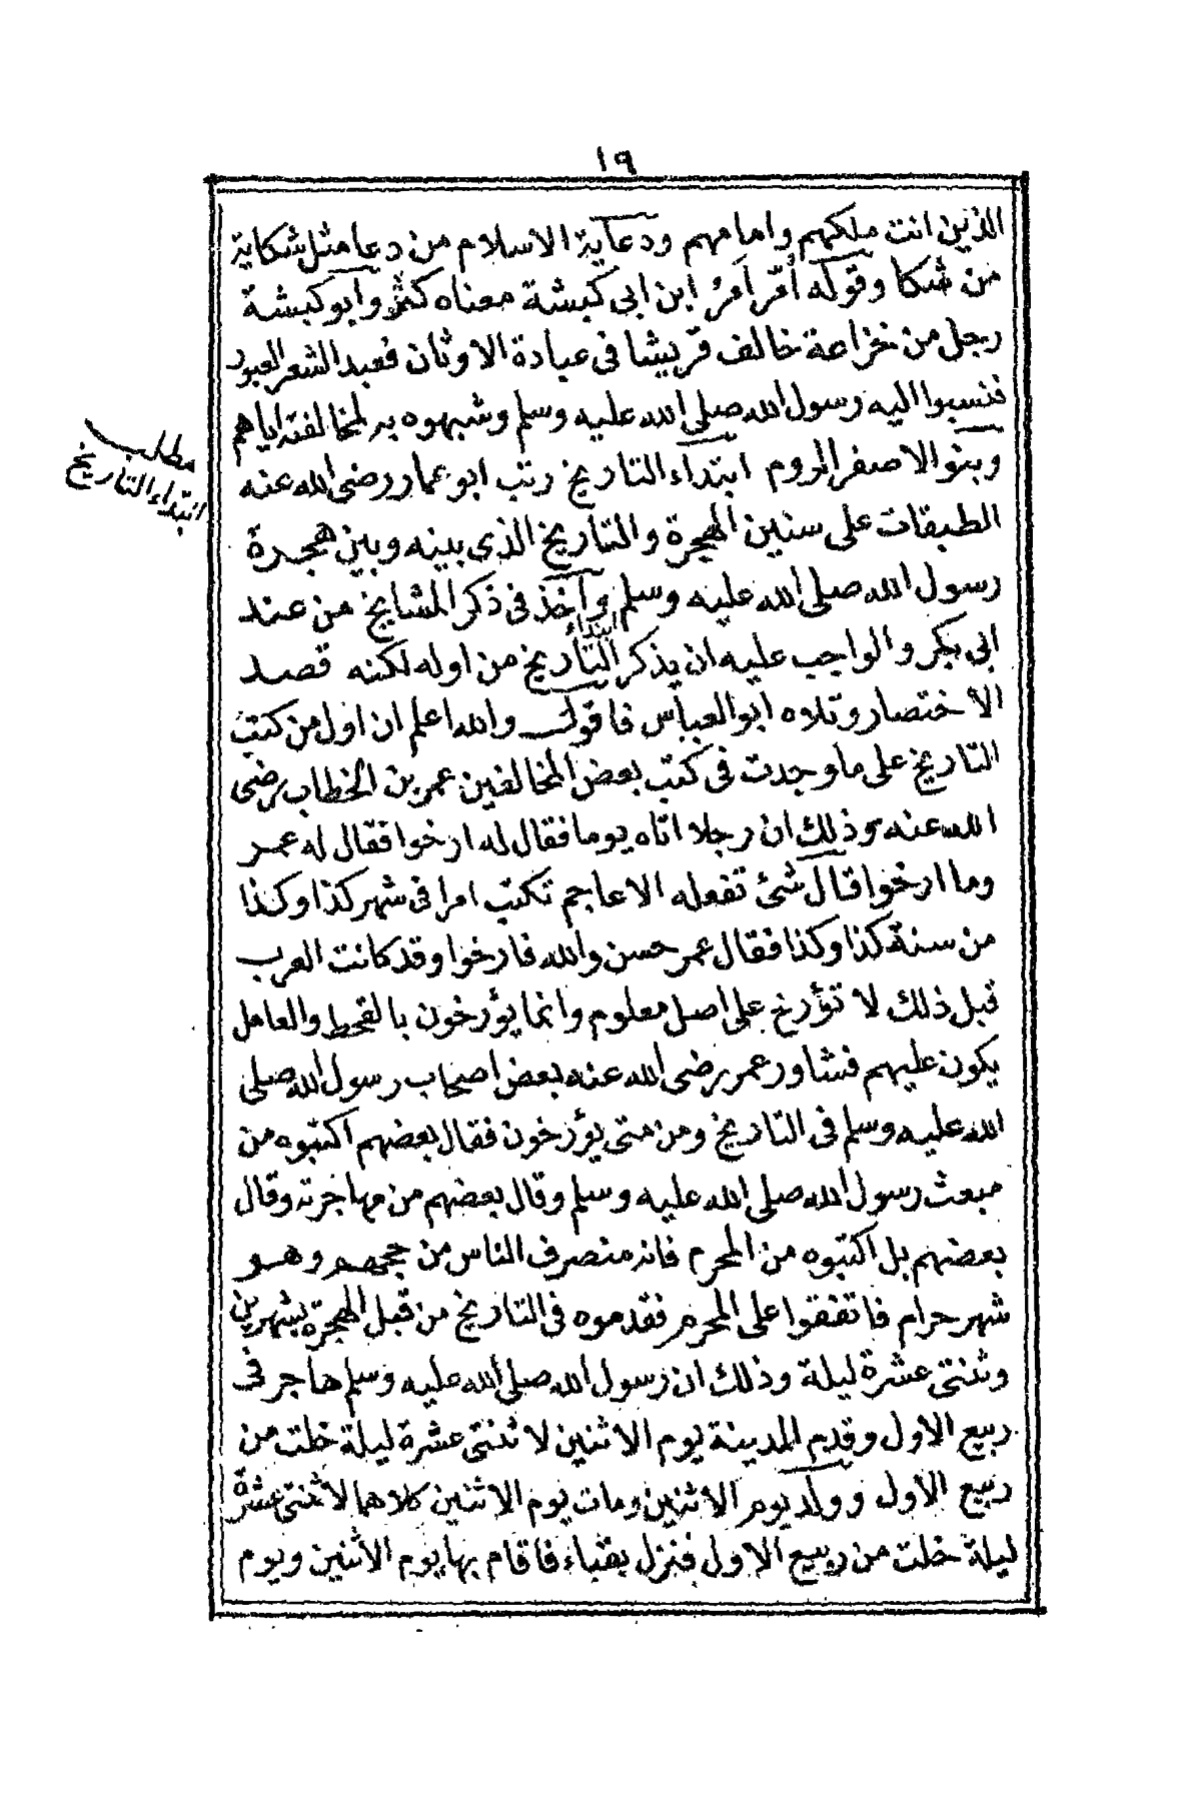 ١٩
الذين انت ملكهم وامامهم ودعاية الاسلام من دعا مثل شكاية
من شكا وقوله أمِرَ أمرُ ابن ابى كبشة معناه كثر وابو كبشة
رجل من خزاعة خالف قريشا فى عبادة الاوثان فعبد الشعر العبور
فنسبوا اليه رسول الله صلى الله عليه وسلم وشبهوه به لمخالفته اياهم
وبنو الاصفر الروم ابتداء التاريخ رتب ابو عمار رضى الله عنه
مطلب
ابتداء التاريخ
الطبقات على سنين الهجرة والتاريخ الذى بينه وبين هجرة
رسول الله صلى الله عليه وسلم وآخذ فى ذكر المشايخ من عند
ابى بكر والواجب عليه ان يذكر ابتداء التاريخ من اوله لكنه قصد
الاختصار وتلاه ابو العباس فاقول والله اعلم ان اول من كتب
التاريخ على ما وجدت فى كتب بعض المخالفين عمر بن الخطاب رضى
الله عنه وذلك ان رجلا اتاه يوما فقال له ارخوا فقال له عمر
وما ارخوا قال شئ تفعله الاعاجم تكتب امرا فى شهر كذا وكذا
من سنة كذا وكذا فقال عمر حسن والله فارخوا وقد كانت العرب
قبل ذلك لا تؤرخ على اصل معلوم وانما يؤرخون بالقحط والعامل
يكون عليهم فشاور عمر رضى الله عنه بعض اصحاب رسول الله صلى
الله عليه وسلم فى التاريخ ومن متى يؤرخون فقال بعضهم اكتبوه من
مبعث رسول الله صلى الله عليه وسلم وقال بعضهم من مهاجرته وقال
بعضهم بل اكتبوه من المحرم فانه منصرف الناس من حجهم وهو
شهر حرام فاتفقوا على المحرم فقدموه فى التاريخ من قبل الهجرة بشهرين
وثنتى عشرة ليلة وذلك ان رسول الله صلى الله عليه وسلم هاجر فى
ربيع الاول وقدم المدينة يوم الاثنين لاثنتى عشرة ليلة خلت من
ربيع الاول وولد يوم الاثنين ومات يوم الاثنين كلاهما لاثنتى عشرة
ليلة خلت من ربيع الاول فنزل بقباء فاقام بها يوم الاثنين ويوم